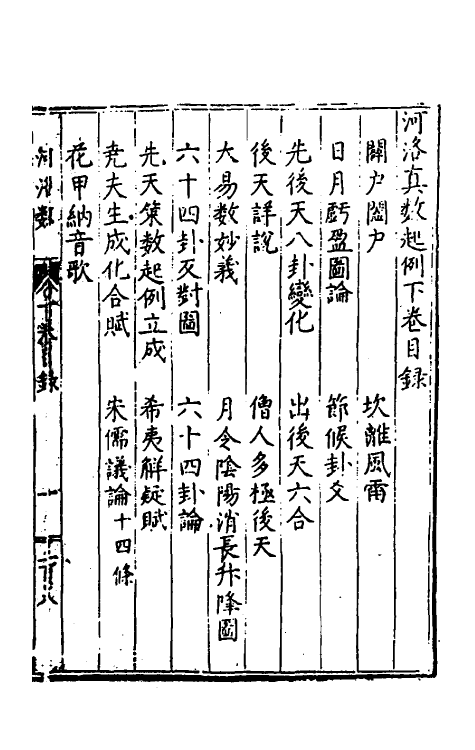 河洛真数起例下卷目録
闢户闔户　坎離風雷
日月虧盈圖論　節候卦爻
先後天八卦變化　出後天六合
後天詳說　僧人多極後天
大易数妙義　月令陰陽消長升降圖
六十四卦反對圖　六十四卦論
先天策数起例立成　希夷解疑賦
尭夫生成化合賦　宋儒議論十四條
花甲納音歌
河洛數　下卷目録